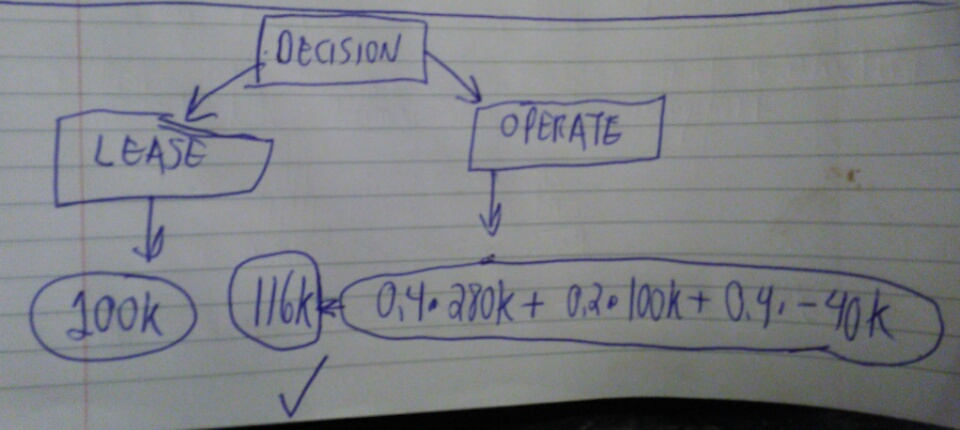 DECISION
LEASE
OPERATE
100k
116k
0,4·280k + 0,2·100k + 0,4·-40k